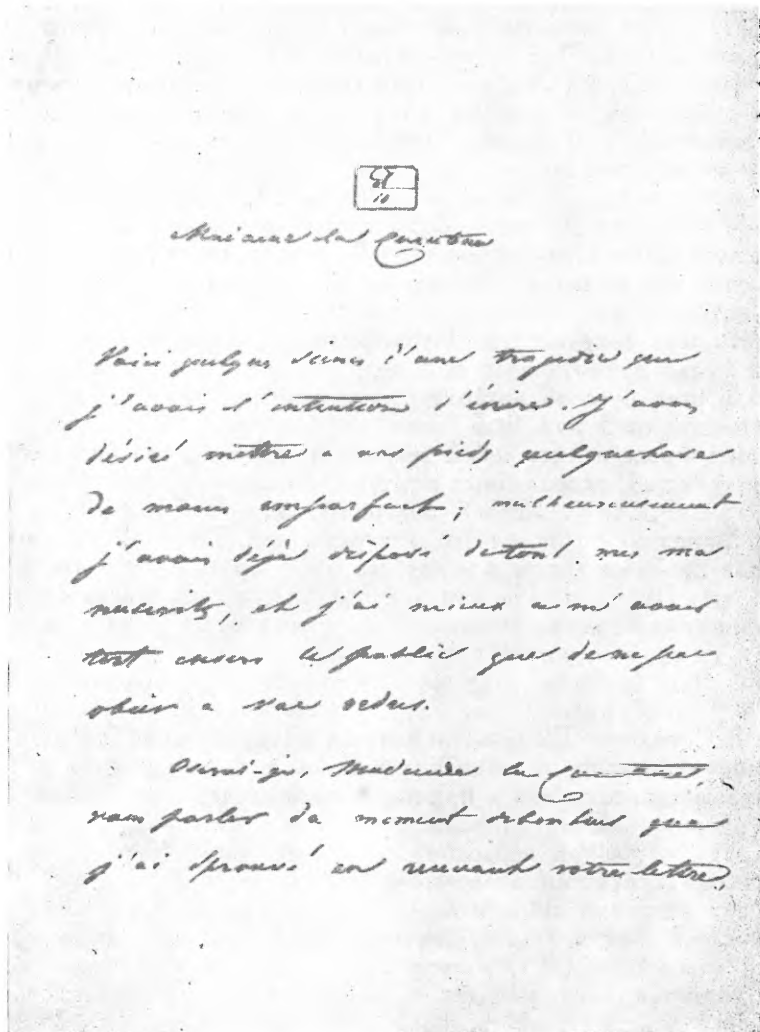 Madame la Comtesse
Voici quelques scènes d'une tragédie que
j'avais l'intention d'écrire. J'avais
désiré mettre a vos pieds quelque chose
de moins imparfait; malheureusement
j'avais déjà disposé de tous mes ma
nuscrits, et j'ai mieux aimé avoir
tort envers le public que de ne pas
obéir a vos ordres.
Oserai-je, Madame la Comtesse
vous parler du moment de bonheur que
j'ai éprouvé en recevant votre lettre,